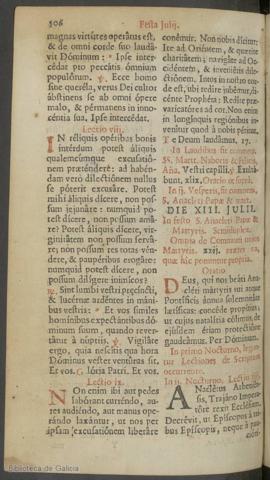 506 Festa Julij.
magnas virtutes operatus est,
& de omni corde suo laudá-
vit Dóminum: * Ipse inter-
cédat pro peccátis ómnium
populórum. ℣. Ecce homo
sine queréla, verus Dei cultor
ábstinens se ab omni ópere
malo, & pérmanens in inno-
céntia sua. Ipse intercédat.
Lectio viij.
IN réliquis opéribus bonis
intérdum potest áliquis
qualemcúmque excusatió-
nem præténdere: ad habén-
dam vero dilectiónem nullus
se póterit excusáre. Potest
mihi áliquis dícere, non pos-
sum jejunáre: numquid po-
test dícere, non possum amá-
re? Potest áliquis dícere, vir-
ginitátem non possum servá-
re; non possum res totas vén-
dere, & paupéribus erogáre:
numquid potest dícere, non
possum dilígere inimícos?
℟. Sint lumbi vestri præcíncti,
& lucérnæ ardéntes in máni-
bus vestris: * Et vos símiles
homínibus expectántibus dó-
minum suum, quando rever-
tátur à núptiis. ℣. Vigiláte
ergo, quia nescítis qua hora
Dóminus vester ventúrus sit.
Et vos. Glória Patri. Et vos.
Lectio ix.
Non enim ibi aut pedes
labórant curréndo, au-
res audiéndo, aut manus ope-
rándo laxántur, ut nos per
ipsam excusatiónem liberáre
conémur. Non nobis dícitur:
Ite ad Oriéntem, & quǽrite
charitátem; navigáte ad Oc-
cidéntem, & inveniétis dile-
ctiónem. Intus in nostro cor-
de est, ubi redíre jubémur, di-
cénte Prophéta: Redíte præ-
varicatóres ad cor. Non enim
in longínquis regiónibus in-
venítur quod à nobis pétitur.
Te Deum laudámus, 17.
In Laudibus fit commem.
SS. Mart. Naboris & Felicis,
Aña, Vestri capílli. ℣ Exultá-
bunt, xlix.
In ij. Vesperis, fit commem,
S. Anacleti Papæ & mart.
DIE XIII. JULII.
In festo S. Anacleti Papæ &
Martyris. Semiduplex.
Omnia de Communi unius
Martyris.
quæ hic ponuntur propria.
Oratio
Deus, qui nos beáti Ana-
cléti mártyris tui atque
Pontíficis ánnua solemnitáte
lætíficas: concéde propítius; ut
cujus natalítia cólimus, de
ejúsdem étiam protectióne
gaudeámus. Per Dóminum.
In primo Nocturno,
tur Lectiones de Scriptura
occurrente.
In ij. Nocturno. Lectio
Anaclétus Athenién-
sis, Trajáno Imperá-
tóre rexit Ecclésiam.
Decrévit, ut Episcopus à tri-
bus Episcopis, neque à
Biblioteca de Galicia